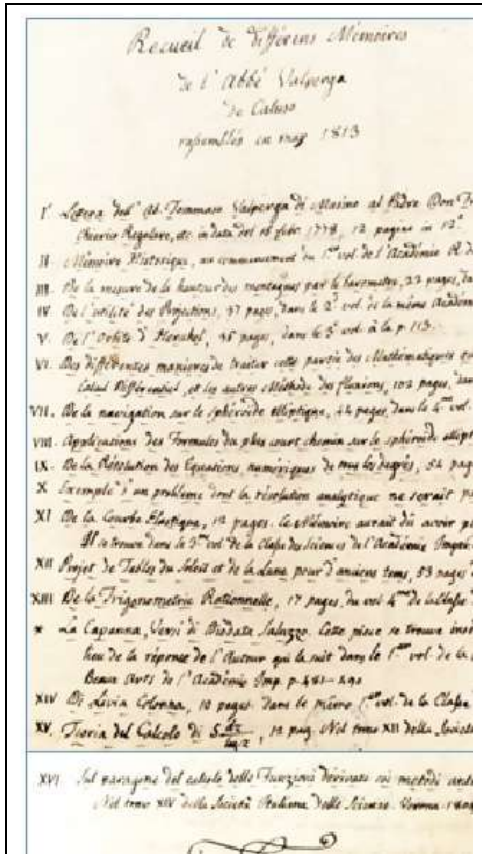 Recueil de différens Mémoires
de l'Abbé Valperga
de Caluso
rassemblés en may 1813
I. Lettera dell' Ab. Tommaso Valperga di Masino al Padre Don
Chierico Regolare, etc. in data del 16 febr. 1778, 12 pagine in 12.º
II. Mémoire Historique, au commencement du 1.er vol. de l'Académie R. de
III. De la mesure de la hauteur des montagnes par le baromètre, 23 pages,
IV. De l'utilité des Projections, 37 pages, dans le 2.d vol. de la même Académ
V. De l'Orbite d'Herschel, 45 pages, dans le 3.e vol. à la p. 113.
VI. Des différentes manieres de traiter cette partie des Mathématiques
Calcul Différentiel, et les autres Méthode des fluxions, 102 pages, dans
VII. De la navigation sur le sphéroïde elliptique, 44 pages, dans le 4.me vol.
VIII. Applications des Formules du plus court chemin sur le sphéroïde ellipt
IX. De la Résolution des Equations numériques de tous les degrés, 54 pag
X Exemple d'un problème dont la résolution analytique ne serait
XI De la Courbe Elastique, 12 pages. Ce Mémoire aurait dû avoir
Il se trouve dans le vol. de la Classe des Sciences de l'Académie
XII Projet de Tables du Soleil et de la Lune pour d'anciens tems, 53 pages
XIII De la Trigonométrie Rationnelle, 17 pages, du vol. 4.me de la Classe
* La Capanna, Versi di Diodata Saluzzo. Cette piece se trouve
lieu de la réponse de l'Auteur qui la suit dans le 1.er vol. de la
Beaux Arts de l'Académie Imp. p. 481-490
XIV Di Livia Colonna, 10 pages. dans le même 1.er vol. de la Classe
XV. Teoria del Calcolo di , 12 pag. Nel tomo XII della Societ
XVI. Sul paragone del calcolo delle Funzioni derivate coi metodi
Nel tomo XIV della Società Italiana delle Scienze. Verona 1809